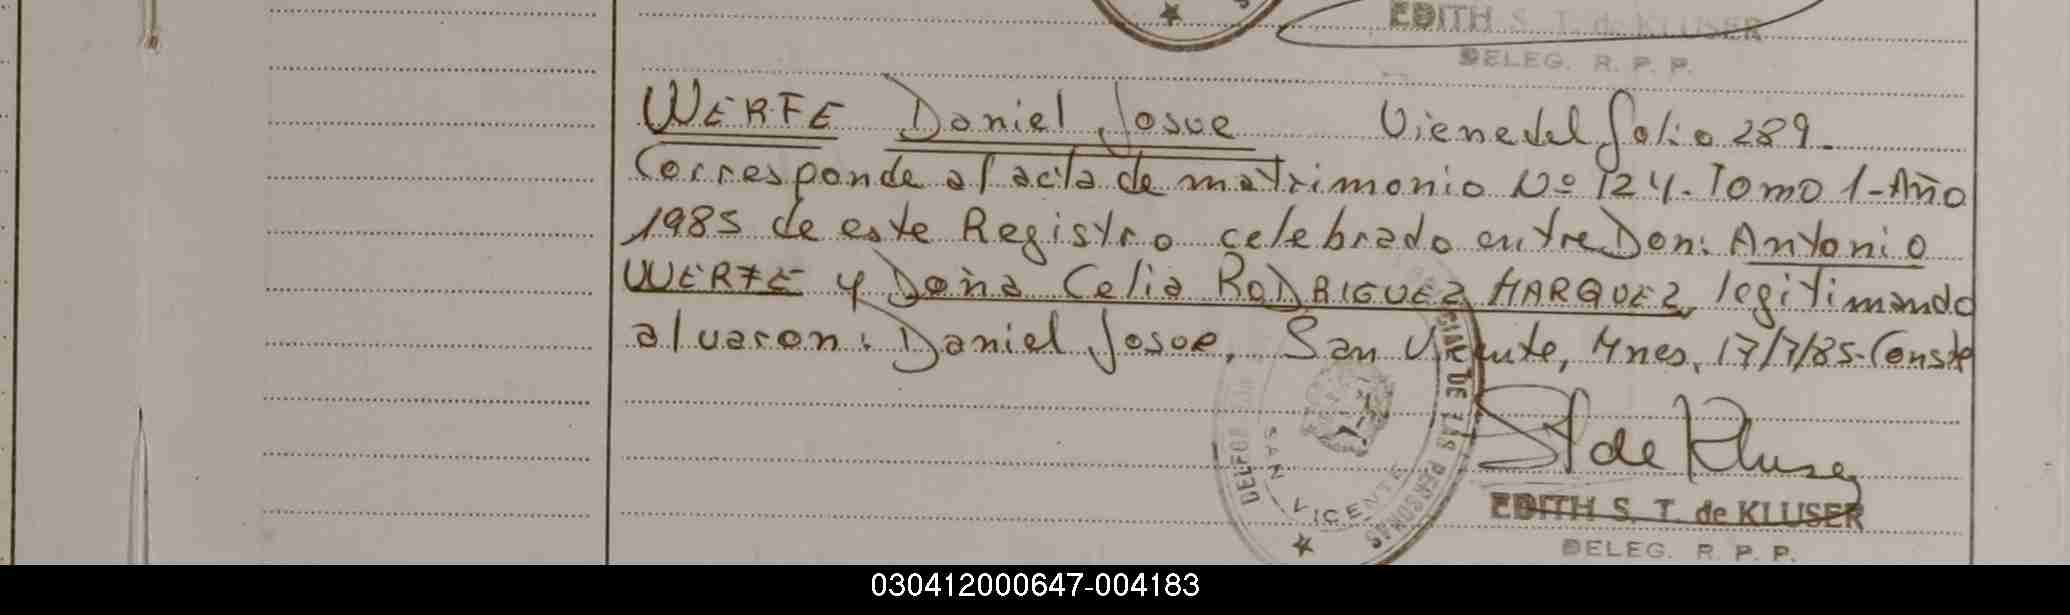 EDITH S. T. de KLUSER
DELEG. R. P. P.
WERFE Daniel Josue Viene del folio 289.
Corresponde al acta de matrimonio Nº 124. Tomo 1-Año
1985 de este Registro celebrado entre Don: Antonio
WERFE y Doña Celia RODRIGUEZ MARQUEZ, legitimando
al varon: Daniel Josue, San Vicente, Mnes, 17/7/85-Conste
ST de Kluser
EDITH S. T. de KLUSER
DELEG. R. P. P.
DE LAS PERSONAS
SAN VICENTE
030412000647-004183